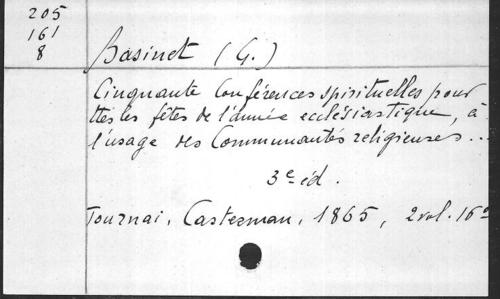 205
161
8
Basinet (G.)
Cinquante Conférences spirituelles pour
ttes les fêtes de l'année ecclésiastique, à
l'usage des Communautés religieuses...
3e éd.
Tournai, Casterman, 1865, 2 vol. 16°